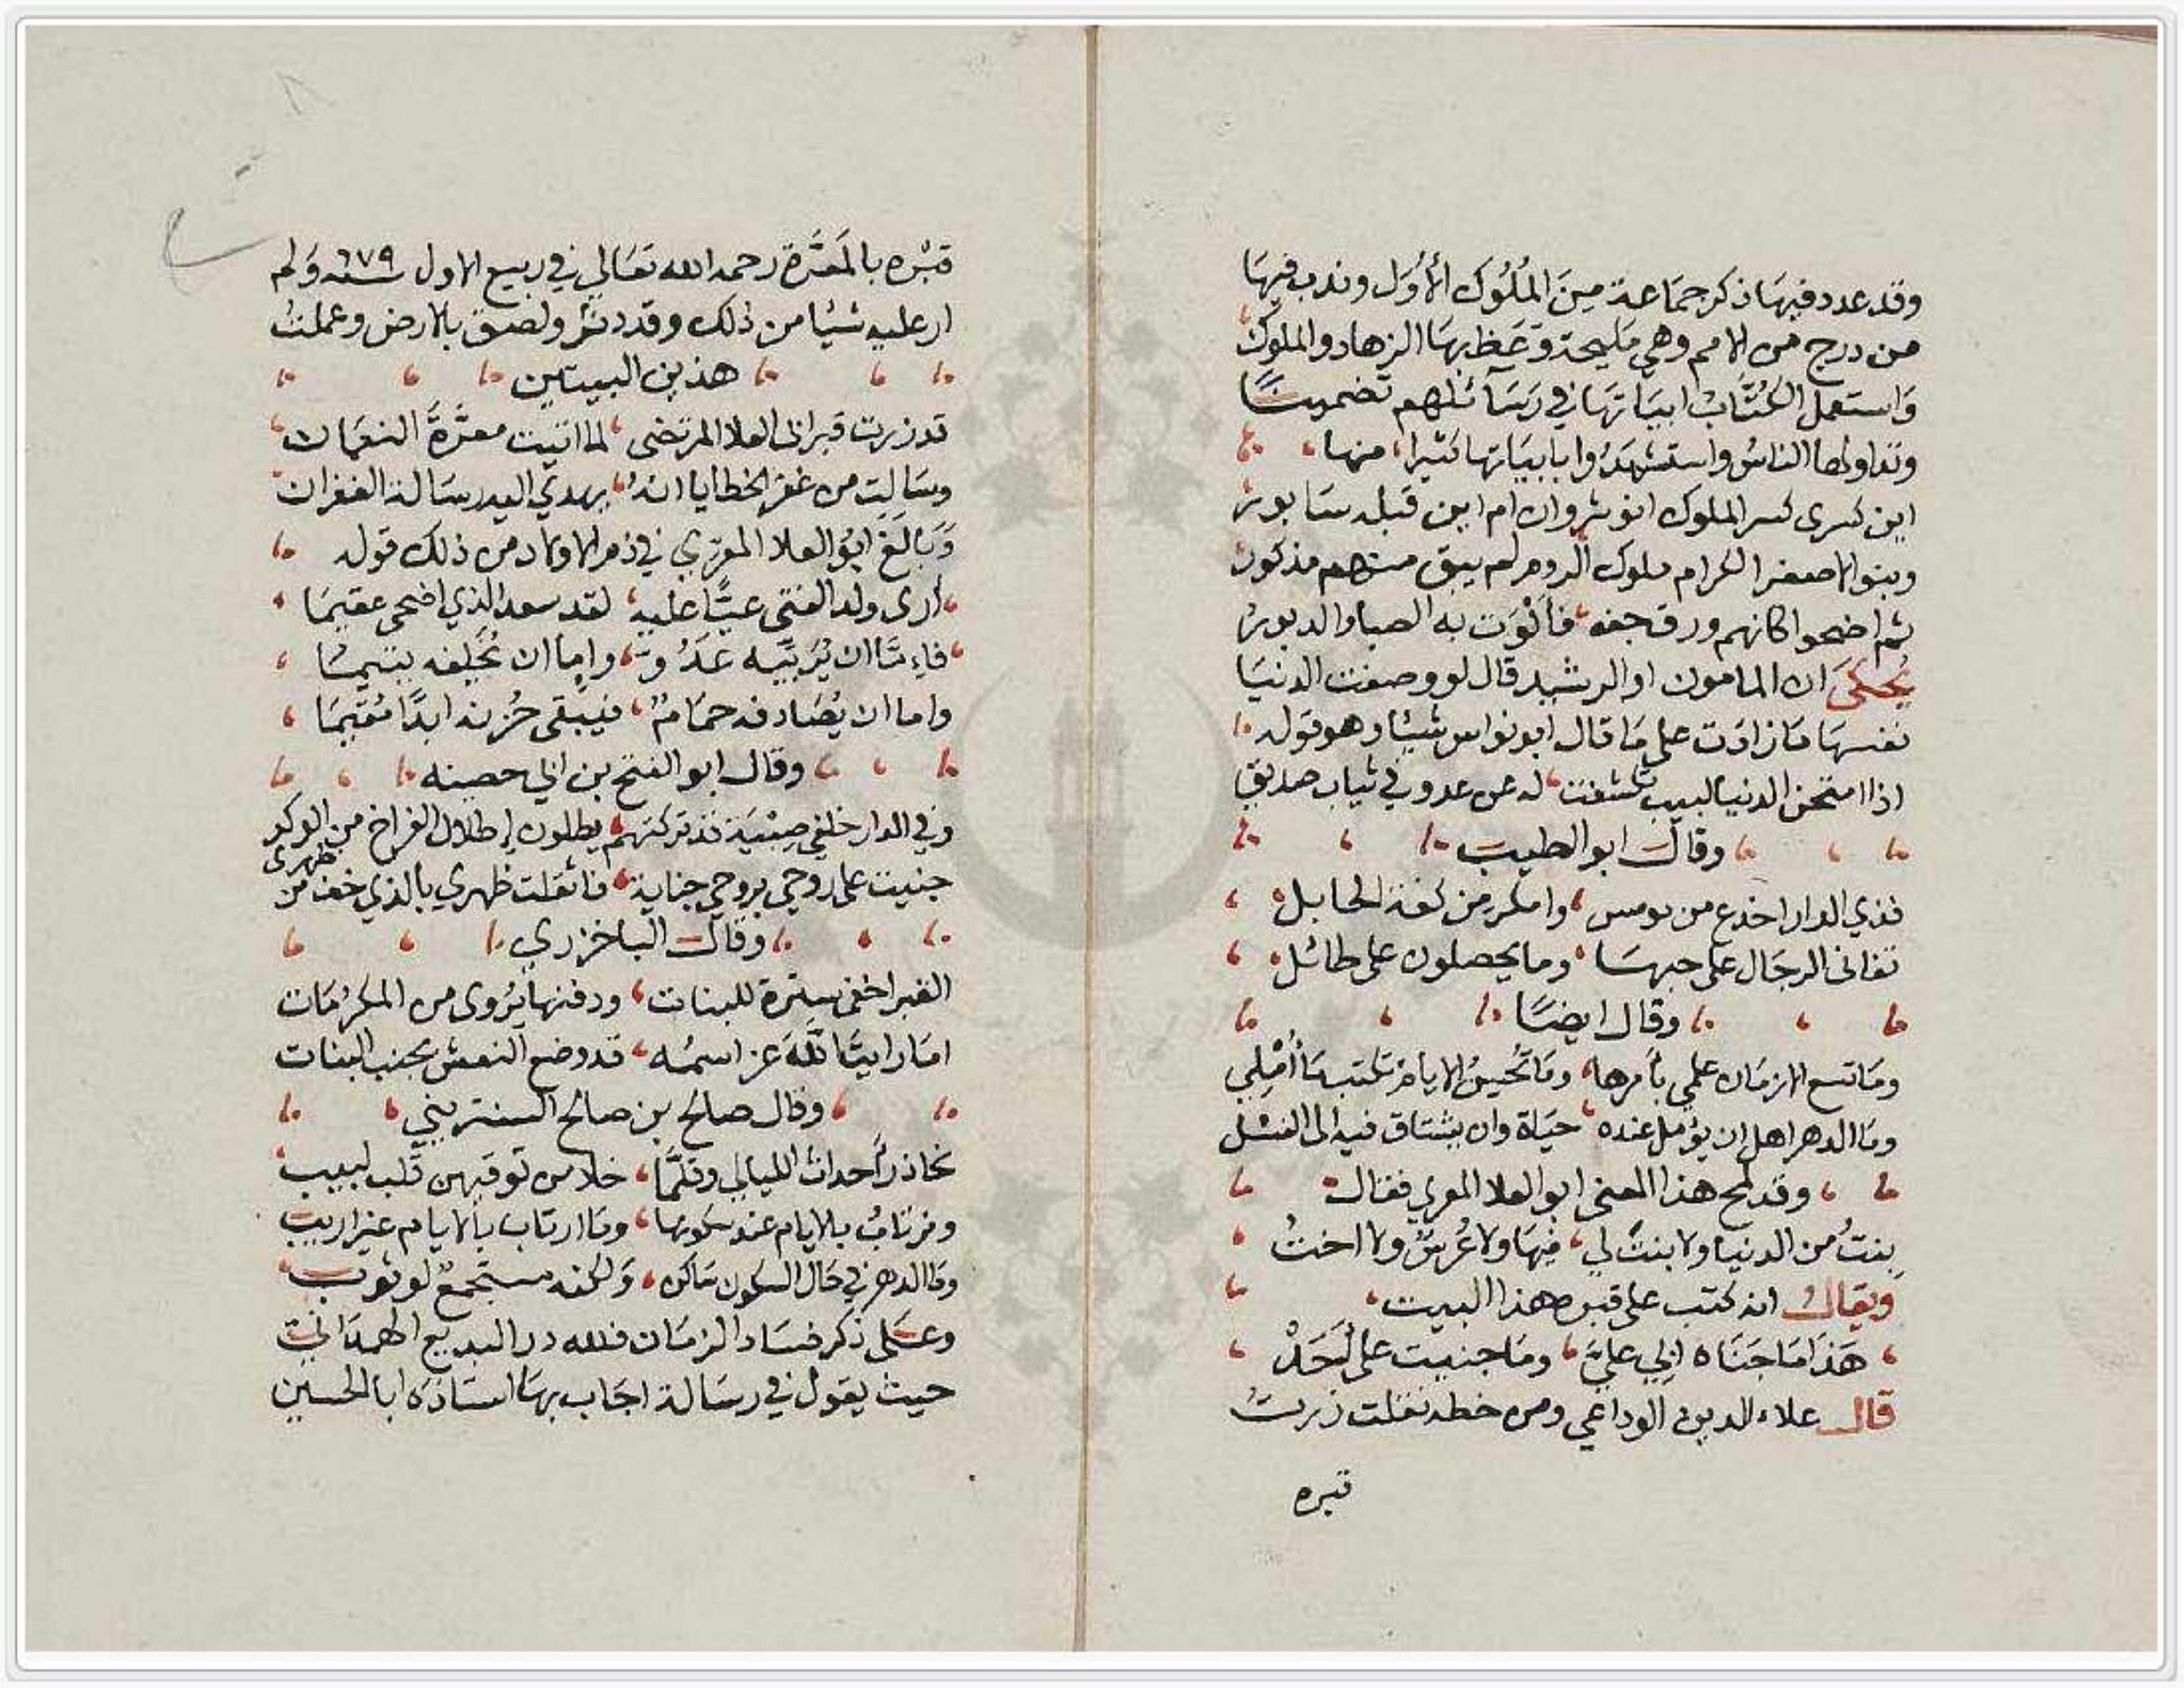 وقد عدد فيها ذكر جماعة من الملوك الأول وندب فيها
من درج من الامم وهي مليحة وعظ بها الزهاد والملوك
واستعمل الكتاب ابياتها في رسائلهم تضمينا
وتداولها الناس واستشهدوا بابياتها كثيرا، منها،
اين كسرى كسر الملوك انوشروان ام اين قبله سابور
وبنو الاصفر الكرام ملوك الروم لم يبق منهم مذكور
ثم اضحوا كانهم ورق جف، فألوت به الصبا والدبور
يحكى ان المامون او الرشيد قال لو وصفت الدنيا
نفسها ما زادت على ما قال ابو نواس شيئا وهو قوله
اذا امتحن الدنيا لبيب تكشفت، له عن عدو في ثياب صديق
وقال ابو الطيب
فذي الدار اخدع من مومس، وامكر من كفة الحابل،
تفانى الرجال على حبها، وما يحصلون على طائل،
وقال ايضا
وما تسع الازمان علمي بأمرها، وما تحسن الايام تكتب ما أملي
وما الدهر اهل ان يؤمل عنده، حياة وان يشتاق فيه الى النسل
وقد لمح هذا المعنى ابو العلا المعري فقال
بنت من الدنيا ولا بنت لي، فيها ولا عرس ولا اخت،
ويقال انه كتب على قبره هذا البيت،
هذا ما جناه ابي علي، وما جنيت على أحد
قال علاء الدين الوداعي ومن خطه نقلت زرت
قبره
قبره بالمعرة رحمه الله تعالى في ربيع الاول سنة ٦٧٩ ولم
ار عليه شيئا من ذلك وقد دثر ولصق بالارض وعملت
هذين البيتين
قد زرت قبر ابي العلا المرتضى، لما اتيت معرة النعمان
وسالت من غفر الخطايا انه، يهدي اليه رسالة الغفران
وبالغ ابو العلا المعري في ذم الاولاد من ذلك قوله
أرى ولد الفتى عبئا عليه، لقد سعد الذي اضحى عقيما،
فاما ان يربيه عدوا، واما ان يخلفه يتيما،
واما ان يصادفه حمام، فيبقى حزنه ابدا مقيما،
وقال ابو الفتح بن ابي حصينه
وفي الدار خلفي صبية قد تركتهم، يطلون إطلال الفراخ من الوكر
جنيت على روحي بروحي جناية، فاثقلت ظهري بالذي خف من ظهرى
وقال الباخرزي
القبر اخفى سترة للبنات، ودفنها يروى من المكرمات
اما رايت الله عز اسمه، قد وضع النعش بجنب البنات
وقال صالح بن صالح الشنتريني
نحاذر أحداث الليالي وقلما، خلا من توقيهن قلب لبيب
ونرتاب بالايام عند سكونها، وما ارتاب بالايام غير اريب
وما الدهر في حال السكون ساكن، ولكنه مستجمع لوثوب
وعلى ذكر فساد الزمان فلله در البديع الهمذاني
حيث يقول في رسالة اجاب بها استاذه ابا الحسين